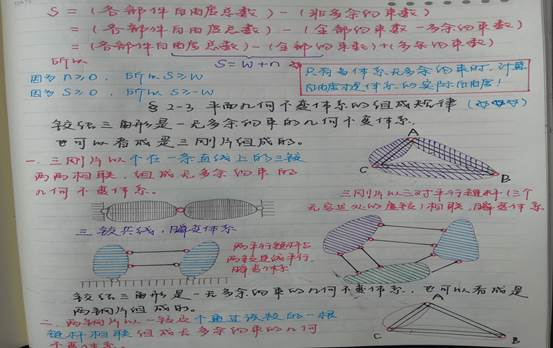 S = (各部件自由度总数) - (非多余约束数)
= (各部件自由度总数) - (全部约束数 - 多余约束数)
= (各部件自由度总数) - (全部约束数) + (多余约束数)
所以 S = W + n
只有当体系无多余约束时, 计算自由度才是体系的实际自由度!
因为 n≥0, 所以 S≥W
因为 S≥0, 所以 S≥-W
§2-3 平面几何不变体系的组成规律
铰结三角形是一无多余约束的几何不变体系.
也可以看成是三刚片组成的.
一. 三刚片以不在一条直线上的三铰
两两相联, 组成无多余约束的
几何不变体系.
A
C
B
三刚片以三对平行链杆(三个
无穷远处的虚铰)相联, 瞬变体系
三铰共线, 瞬变体系
两平行链杆与
两铰连线平行,
瞬变体系
铰结三角形是一无多余约束的几何不变体系, 也可以看成是
两钢片组成的.
二. 两钢片以一铰及不通过该铰的一根
链杆相联组成无多余约束的几何
不变体系.
A
C
B